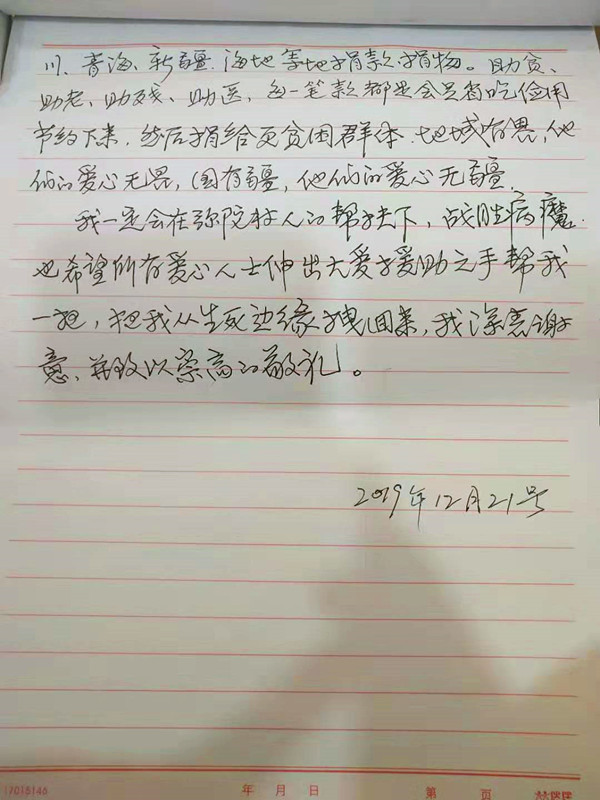 川、青海、新疆、海地等地捐款捐物。助贫、
助老、助残、助医,每一笔款都是会员省吃俭用
节约下来,然后捐给更贫困群体.地域有界,他
们的爱心无界,国有疆,他们的爱心无疆.
我一定会在弥院 人的帮扶下,战胜病魔.
也希望所有爱心人士伸出大爱援助之手帮我
一把,把我从生死边缘拽回来,我深表谢
意,并致以崇高的敬礼。
2019年12月21号
17015146
年 月 日
第 页